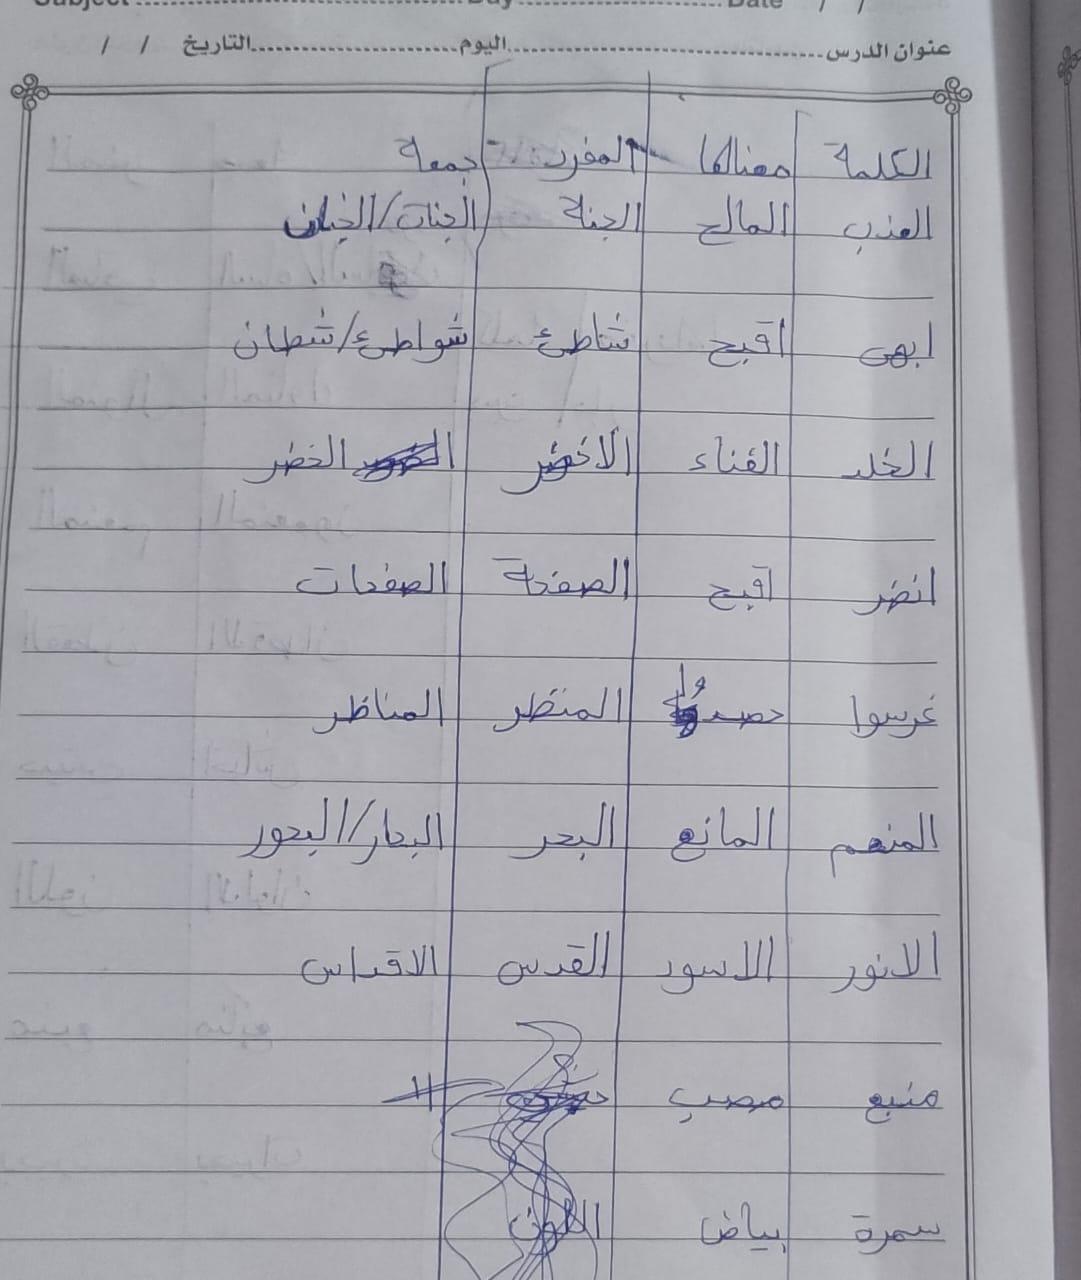 Subject Day Date / /
عنوان الدرس اليوم التاريخ / /
الكلمة معناها المفرد جمعة
العذب المالح الجنة الجنات/الجنان
ابهى اقبح شاطئ شواطئ/شطان
الخلد الفناء الاخضر الخضر
انضر اقبح الصفحة الصفحات
غرسوا حصدوا المنظر المناظر
المنعم المانع البحر البحار/البحور
الانور الاسود القدس الاقداس
منبع مصب
سمرة بياض اللون